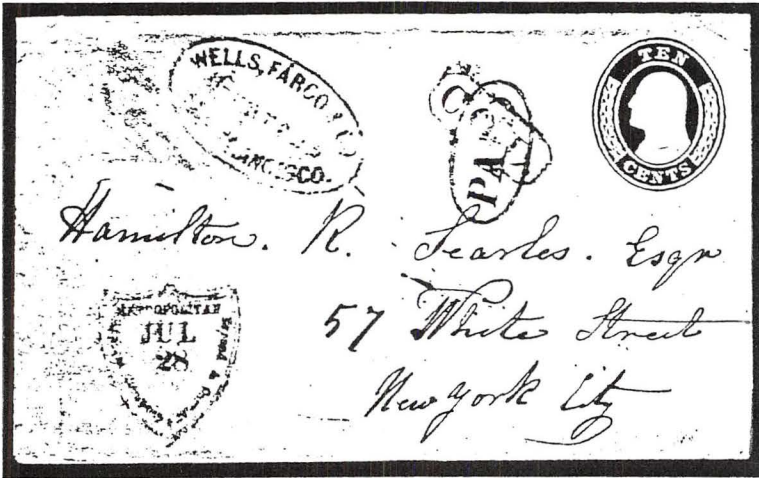 WELLS, FARGO & CO
FRANCISCO.
PAID
TEN
CENTS
Hamilton. R. Searles. Esqr
57 White Street
New York City
METROPOLITAN
JUL
28